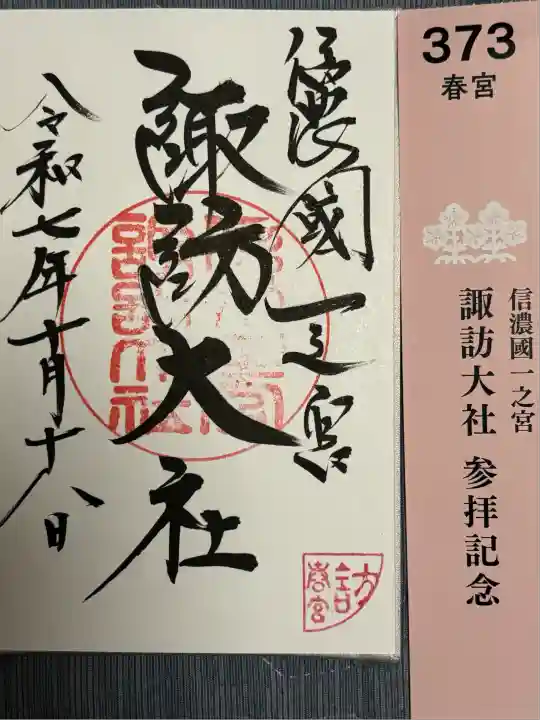 信濃國一之宮
諏訪大社
令和七年十月十八日
春宮
373
春宮
信濃國一之宮
諏訪大社 参拝記念